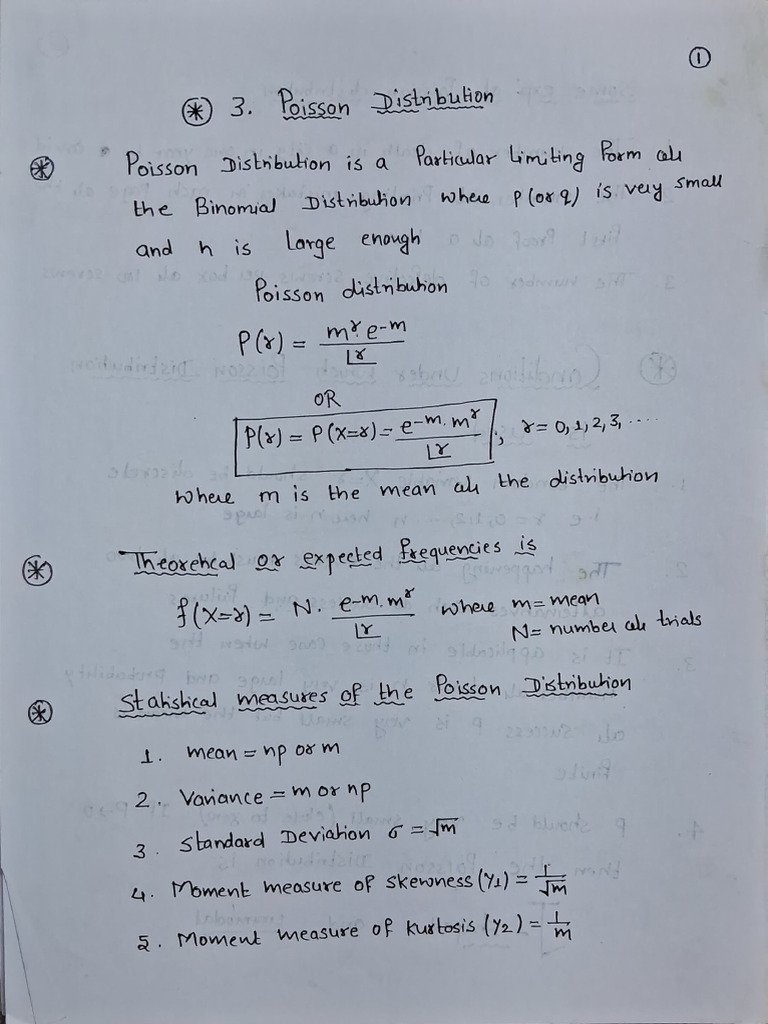 ①
⊛ 3. Poisson Distribution
⊛ Poisson Distribution is a Particular Limiting Form of
the Binomial Distribution where p (or q) is very small
and n is Large enough
Poisson distribution
P(r) = m^r e^-m / ⌊r
OR
P(r) = P(X=r) = e^-m . m^r / ⌊r ; r = 0, 1, 2, 3, ....
where m is the mean of the distribution
⊛ Theoretical or expected frequencies is
f(X=r) = N . e^-m . m^r / ⌊r where m = mean
N = number of trials
⊛ Statistical measures of the Poisson Distribution
1. mean = np or m
2. Variance = m or np
3. Standard Deviation σ = √m
4. Moment measure of skewness (γ1) = 1/√m
5. Moment measure of Kurtosis (γ2) = 1/m